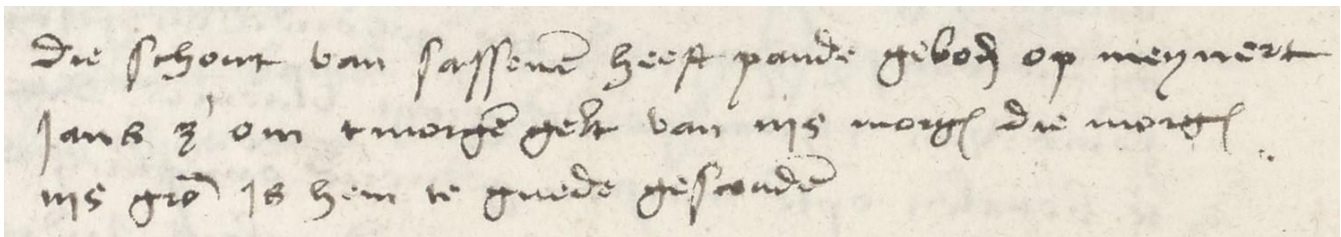 die schout van sassenē heeft pande gebod̄ op meynert
Jans zˀ om tmorgē gelt van iijs morgē die morgē
iijs gro̅ Is hem te guede gescoudē